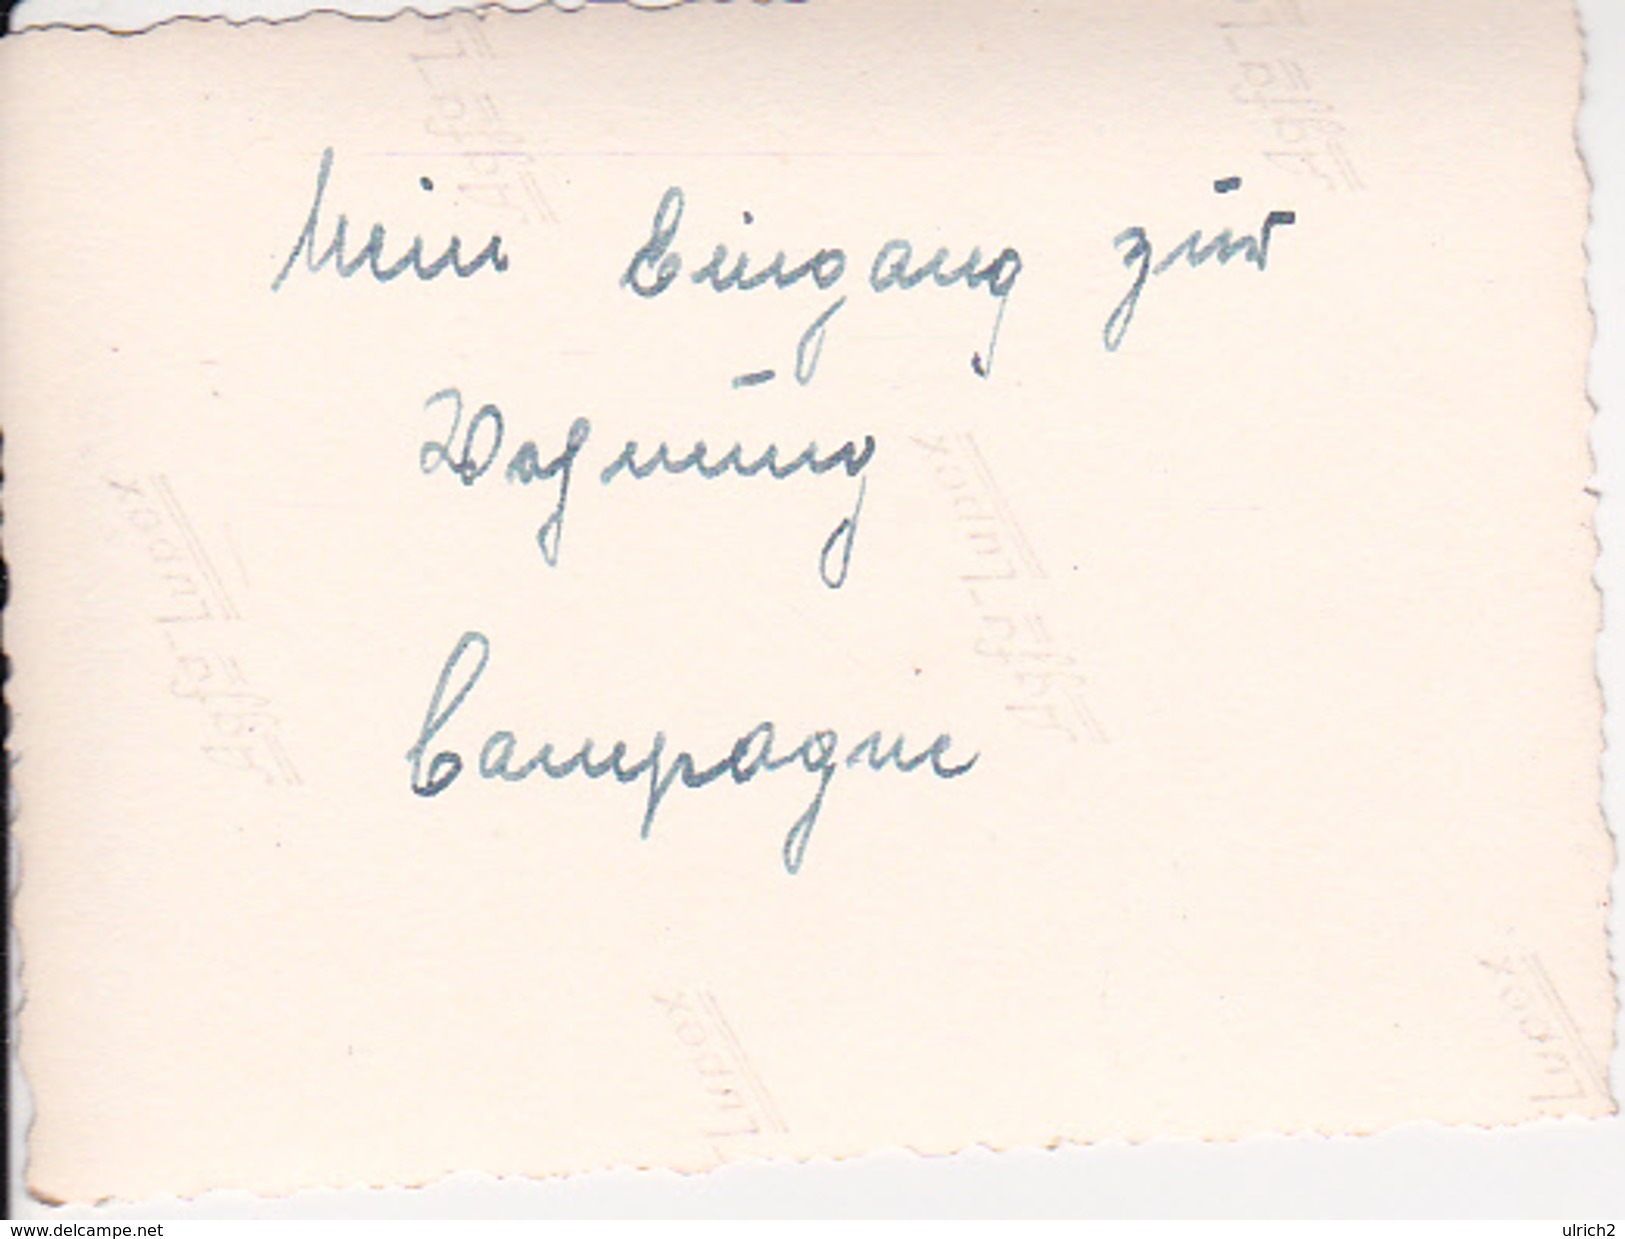 Mein Eingang zur
Wohnung
Campagne
Agfa-Lupex
Agfa-Lupex
Agfa-Lupex
Agfa-Lupex
Lupex
Lupex
www.delcampe.net
ulrich2